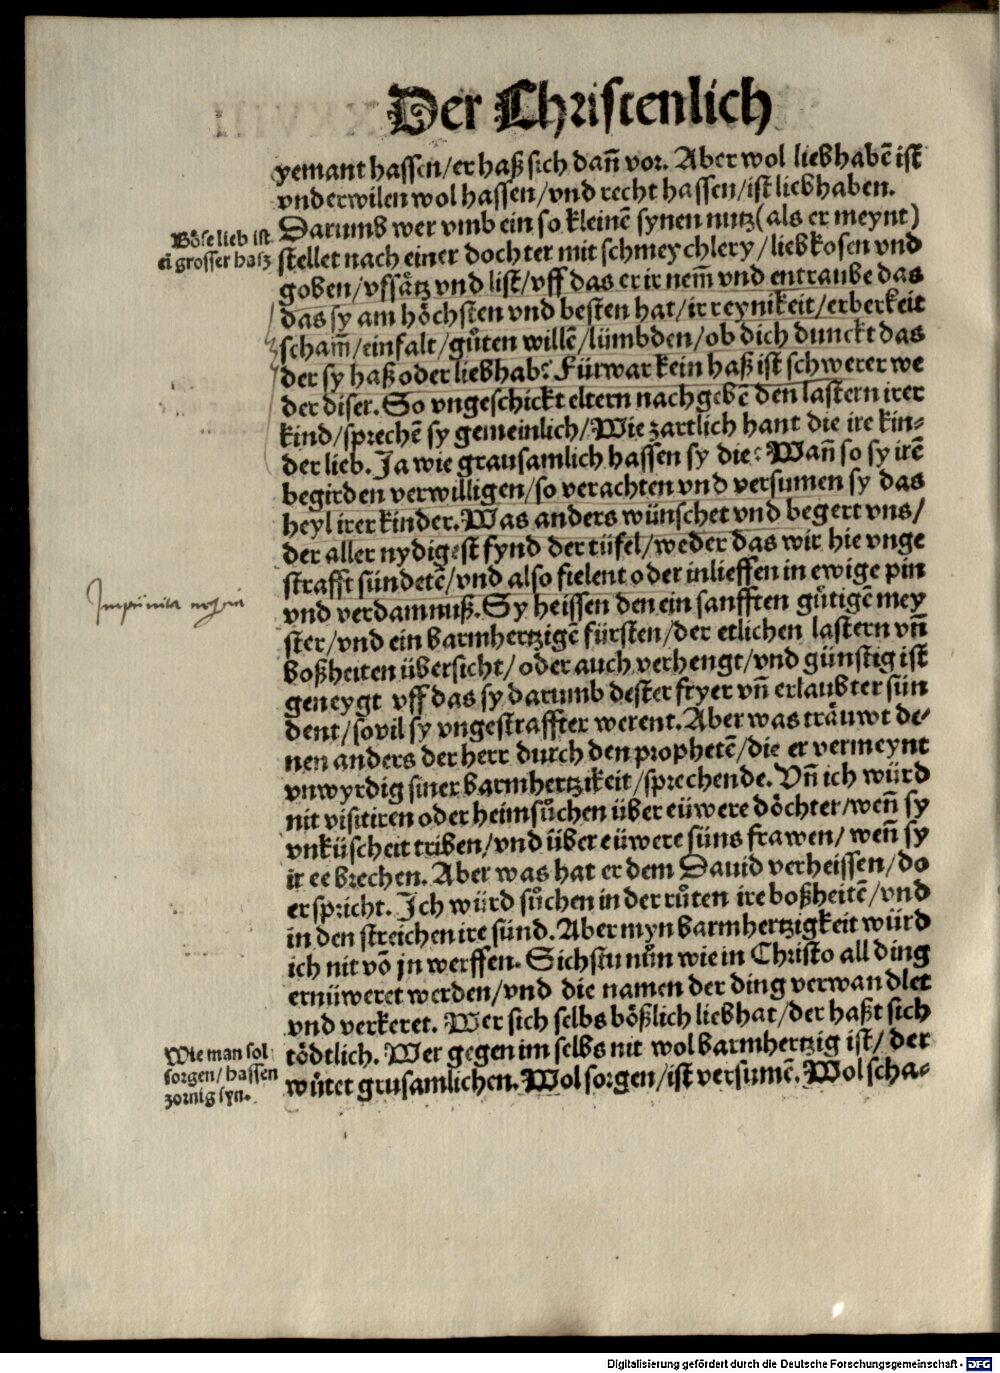 Der Christenlich
yemant hassen/er haß sich dañ vor. Aber wol liebhabē ist
vnderwilen wol hassen/vnd recht hassen/ist liebhaben.
Darumb wer vmb ein so kleinē synen nutz (als er meynt)
Böse lieb ist
ei grosser hasz
stellet nach einer dochter mit schmeychlery/liebkosen vnd
goben/vffsätz vnd list/vff das er ir nem̃ vnd entraube das
das sy am höchsten vnd besten hat/ir reynikeit/erberkeit
scham̃/einfalt/gůten willē/lümbden/ob dich dunckt das
der sy haß oder liebhab? Fürwar kein haß ist schwerer we
der diser. So vngeschickt eltern nachgebē den lastern irer
kind/sprechē sy gemeinlich/Wie zartlich hant die ire kin-
der lieb. Ja wie grausamlich hassen sy die? Wañ so sy irē
begirden verwilligen/so verachten vnd versumen sy das
heyl irer kinder. Was anders wünschet vnd begert vns/
der aller nydigest fynd der tüfel/weder das wir hie vnge
strafft sündetē/vnd also fielent oder inlieffen in ewige pin
vnd verdamnuß. Sy heissen den ein sanfften gůtigē mey
ster/vnd ein barmhertzigē fürsten/der etlichen lastern vñ
boßheiten übersicht/oder auch verhengt/vnd günstig ist
geneygt vff das sy darumb dester fryer vñ erlaubter sün
dent/sovil sy vngestraffter werent. Aber was träuwt de-
nen anders der herr durch den prophetē/die er vermeynt
vnwyrdig siner barmhertzikeit/sprechende. Vñ ich würd
nit visitiren oder heimsůchen über eüwere döchter/weñ sy
vnküscheit triben/vnd über eüwere süns frawen/weñ sy
ir ee brechen. Aber was hat er dem Dauid verheissen/do
er spricht. Ich würd sůchen in der růten ire boßheitē/vnd
in den streichen ire sünd. Aber myn barmhertzigkeit würd
ich nit vō jn werffen. Sichstu nůn wie in Christo all ding
ernüweret werden/vnd die namen der ding verwandlet
vnd verkeret. Wer sich selbs bößlich liebhat/der haßt sich
tödtlich. Wer gegen im selbs nit wol barmhertzig ist/der
wůtet grusamlichen. Wol sorgen/ist versumē. Wol scha-
Wie man sol
sorgen/hassen
zornig syn.
Digitalisierung gefördert durch die Deutsche Forschungsgemeinschaft - DFG